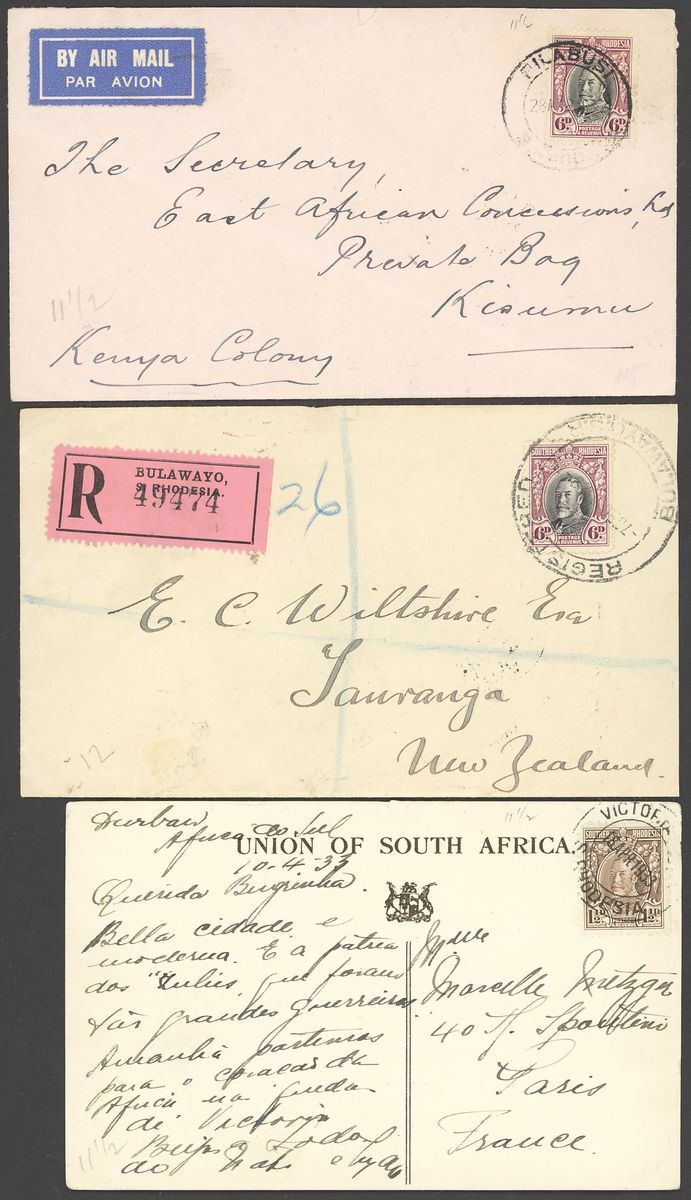 BY AIR MAIL
PAR AVION
11½
SOUTHERN RHODESIA
FILABUSI
6D 6D
POSTAGE & REVENUE
The Secretary,
East African Concessions, Ltd
Private Bag
Kisumu
11½
Kenya Colony
R
BULAWAYO,
S. RHODESIA.
49474
26
SOUTHERN RHODESIA
6D 6D
POSTAGE & REVENUE
REGISTERED BULAWAYO
E. C. Wiltshire Esq
Tauranga
New Zealand.
12
Durban
Africa do Sul
10-4-33
UNION OF SOUTH AFRICA.
11½
SOUTHERN RHODESIA
VICTORIA
RHODESIA
1½D 1½D
Querida
Bella cidade e
moderna. E a patria
dos "Zulus, que foram
tão grandes guerreiros
Amanhã partimos
para o coração da
Africa na queda
de Victoria
Mlle
Marcelle Metzger
40 R. Spontini
Paris
France.
11½